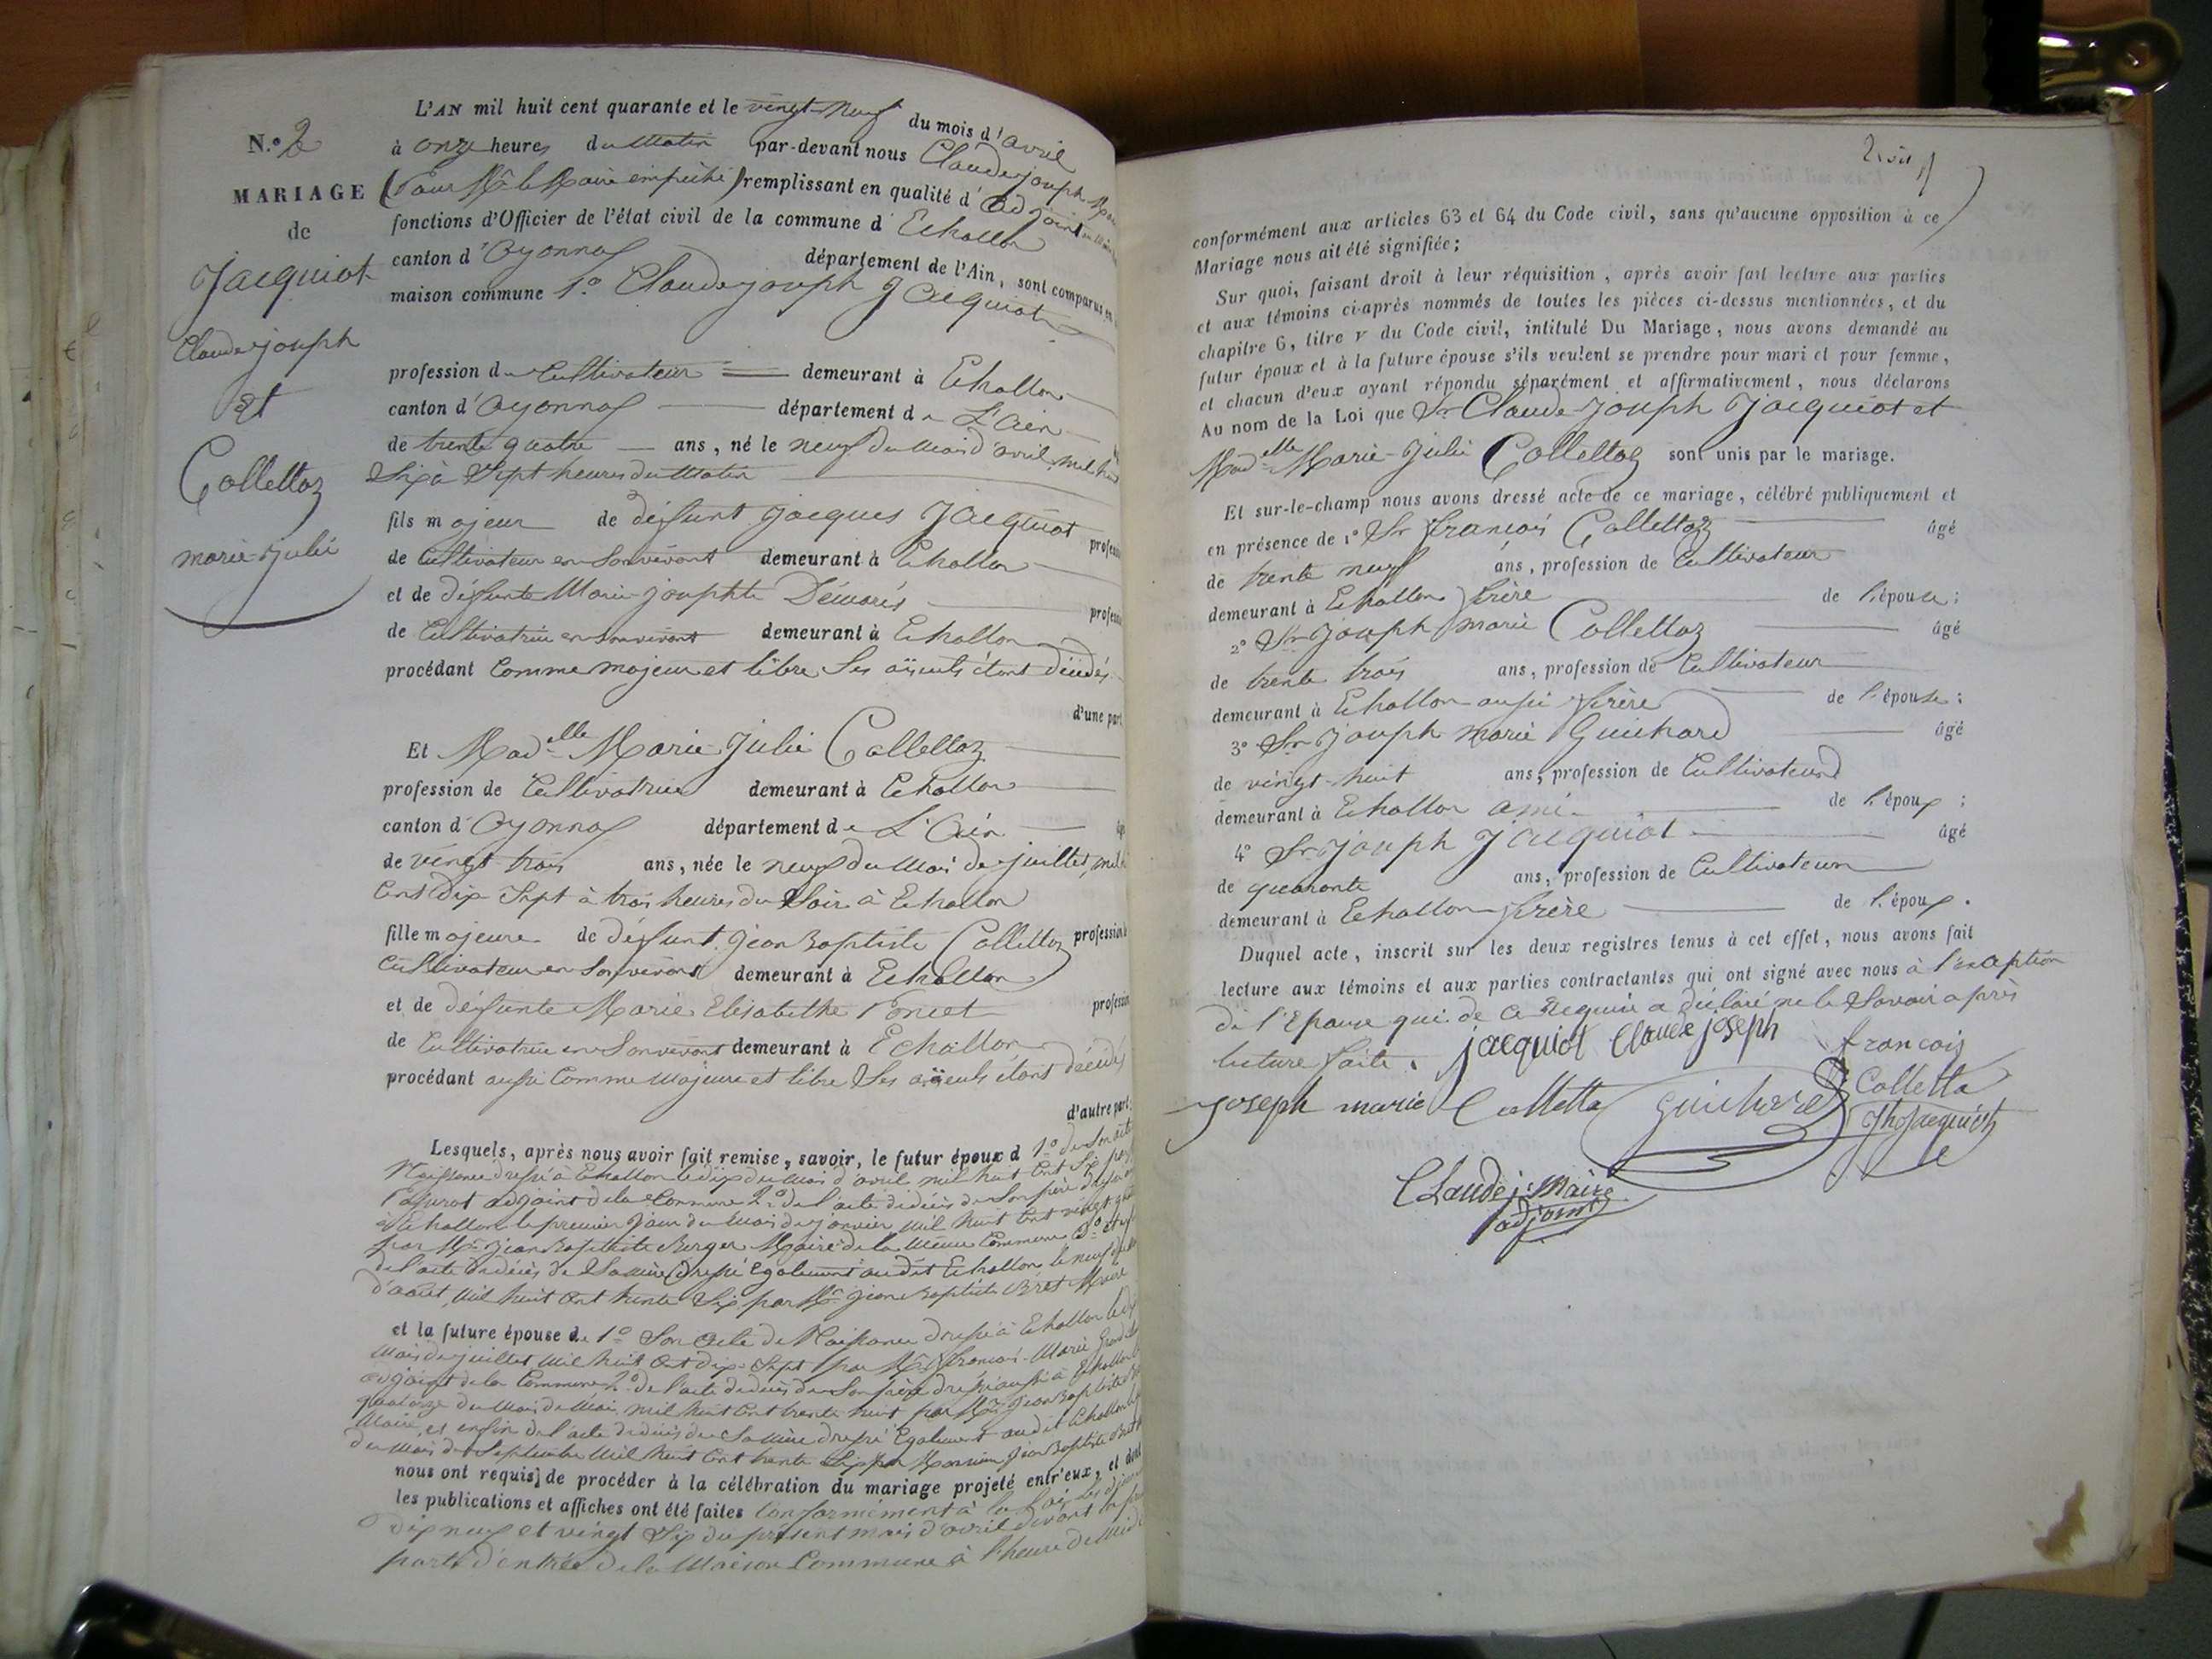 N.º 2
MARIAGE
de
Jacquiot
Claude joseph
Et
Collettaz
marie-julie
L'AN mil huit cent quarante et le vingt-neuf du mois d'avril
à onze heures du matin par-devant nous Claude joseph
(Pour Mr le Maire empêché) remplissant en qualité d'adjoint
fonctions d'Officier de l'état civil de la commune d'Echallon
canton d'Oyonnax département de l'Ain, sont comparus en
maison commune 1º Claude joseph Jacquiot
profession de Cultivateur demeurant à Echallon
canton d'Oyonnax département de L'Ain
de trente quatre ans, né le neuf du mois d'avril, mil huit
Six à Sept heures du Matin
fils majeur de défunt Jacques Jacquiot
de Cultivateur en Son vivant demeurant à Echallon
et de défunte Marie josephte Démarés
de Cultivatrice en son vivant demeurant à Echallon
procédant Comme majeur et libre Ses aïeuls étant décédés
d'une part
Et Mad.elle Marie-Julie Collettaz
profession de Cultivatrice demeurant à Echallon
canton d'Oyonnax département de L'Ain
de vingt trois ans, née le neuf du Mois de juillet, mil
Cent dix Sept à trois heures du Soir à Echallon
fille majeure de défunt Jean Baptiste Collettaz
Cultivateur en Son vivant demeurant à Echallon
et de défunte Marie Elisabethe Poncet
de Cultivatrice en Son vivant demeurant à Echallon
procédant aussi Comme Majeure et libre Ses aïeuls étant décédés
d'autre part;
Lesquels, après nous avoir fait remise, savoir, le futur époux d 1º de Son acte
Naissance dressé à Echallon le dix du mois d'avril mil huit Cent Six par
adjoint de la Commune 2º de l'acte de décès de Son père dressé
à Echallon le premier jour du Mois de janvier mil huit Cent vingt
par Mr Jean Baptiste Berger Maire de la même Commune 3º et
de l'acte de décès de Sa Mère dressé Egalement audit Echallon le neuf
d'août, mil huit Cent trente Six par Mr Jean Baptiste Maire
et la future épouse de 1º Son acte de Naissance dressé à Echallon le dix
Mois de juillet mil huit Cent dix-Sept par Mr François-Marie
adjoint de la Commune 2º de l'acte de décès de Son père dressé aussi à Echallon
quatorze du Mois de Mai mil huit Cent trente huit par Mr Jean Baptiste
Maire, et enfin de l'acte de décès de Sa Mère dressé Egalement audit Echallon
du Mois de Septembre mil huit Cent trente Six par Monsieur Jean Baptiste
nous ont requis de procéder à la célébration du mariage projeté entr'eux, et dont
les publications et affiches ont été faites Conformément à la loi les
dix neuf et vingt Six du présent mois d'avril devant la
porte d'entrée de la Maison Commune à l'heure de Midi
conformément aux articles 63 et 64 du Code civil, sans qu'aucune opposition à ce
Mariage nous ait été signifiée;
Sur quoi, faisant droit à leur réquisition, après avoir fait lecture aux parties
et aux témoins ci-après nommés de toutes les pièces ci-dessus mentionnées, et du
chapitre 6, titre v du Code civil, intitulé Du Mariage, nous avons demandé au
futur époux et à la future épouse s'ils veulent se prendre pour mari et pour femme,
et chacun d'eux ayant répondu séparément et affirmativement, nous déclarons
Au nom de la Loi que Sr Claude-joseph Jacquiot et
Mad.elle Marie-Julie Collettaz sont unis par le mariage.
Et sur-le-champ nous avons dressé acte de ce mariage, célébré publiquement et
en présence de 1º Sr françois Collettaz âgé
de trente neuf ans, profession de Cultivateur
demeurant à Echallon frère de l'épouse;
2º Sr Joseph marie Collettaz âgé
de trente trois ans, profession de Cultivateur
demeurant à Echallon aussi frère de l'épouse;
3º Sr Joseph marie Guichard âgé
de vingt-huit ans, profession de Cultivateur
demeurant à Echallon ami de l'époux;
4º Sr Joseph Jacquiot âgé
de quarante ans, profession de Cultivateur
demeurant à Echallon frère de l'époux.
Duquel acte, inscrit sur les deux registres tenus à cet effet, nous avons fait
lecture aux témoins et aux parties contractantes qui ont signé avec nous à l'exception
de l'Epouse qui de ce Requise a déclaré ne le Savoir après
lecture faite. jacquiot Claude joseph françois
Colletta
Joseph marie Colletta Guichard Jh Jacquiot
Claude j. Maire
adjoint